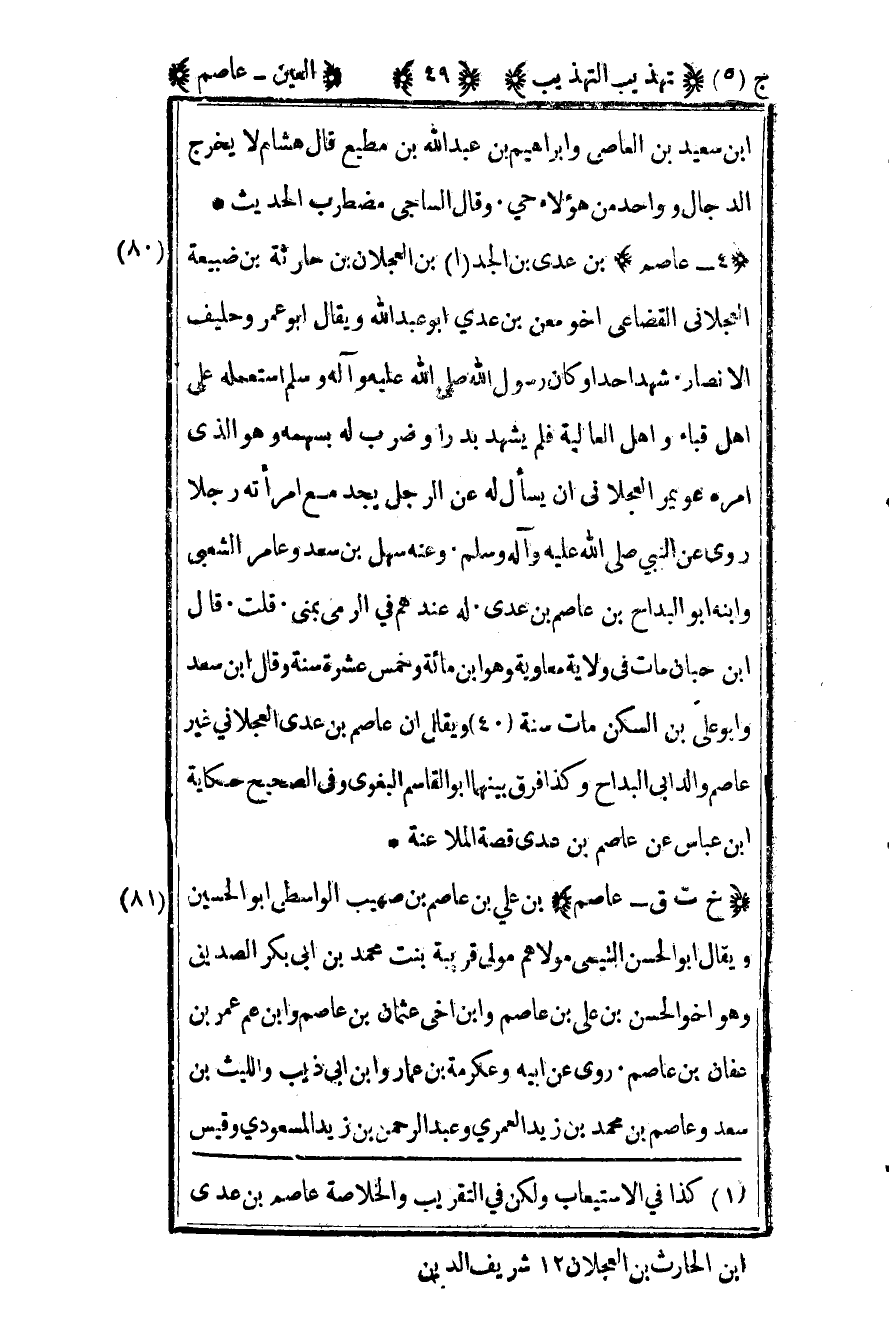 ج (٥) ﴿ تهذيب التهذيب ﴾ ﴿ ٤٩ ﴾ ﴿ العين ـ عاصم ﴾
ابن سعيد بن العاصى وابراهيم بن عبدالله بن مطيع قال هشام لا يخرج
الدجال و واحد من هؤلاء حي · وقال الساجى مضطرب الحديث *
(٨٠) ﴿ ٤ ـ عاصم ﴾ بن عدى بن الجد (١) بن العجلان بن حارثة بن ضبيعة
العجلانى القضاعى اخو معن بن عدي ابو عبدالله ويقال ابو عمر وحليف
الانصار · شهد احدا وكان رسول الله صلى الله عليه وآله وسلم استعمله على
اهل قباء و اهل العالية فلم يشهد بدرا و ضرب له بسهمه و هو الذى
امره عويمر العجلانى ان يسأل له عن الرجل يجد مع امرأته رجلا
روى عن النبي صلى الله عليه وآله وسلم · وعنه سهل بن سعد وعامر الشعبى
وابنه ابو البداح بن عاصم بن عدى · له عندهم في الرمى بمنى · قلت · قال
ابن حبان مات فى ولاية معاوية وهو ابن مائة وخمس عشرة سنة وقال ابن سعد
وابو علي بن السكن مات سنة (٤٠) ويقال ان عاصم بن عدى العجلاني غير
عاصم والد ابي البداح وكذا فرق بينهما ابو القاسم البغوى وفى الصحيح حكاية
ابن عباس عن عاصم بن عدى قصة الملاعنة *
(٨١) ﴿ خ ت ق ـ عاصم ﴾ بن علي بن عاصم بن صهيب الواسطى ابو الحسين
و يقال ابو الحسن التيمى مولاهم مولى قريبة بنت محمد بن ابى بكر الصديق
وهو اخو الحسن بن على بن عاصم وابن اخى عثمان بن عاصم وابن عم عمر بن
عفان بن عاصم · روى عن ابيه وعكرمة بن عمار وابن ابي ذيب والليث بن
سعد وعاصم بن محمد بن زيد العمري وعبد الرحمن بن زيد المسعودي وقيس
(١) كذا في الاستيعاب ولكن في التقريب والخلاصة عاصم بن عدى
ابن الحارث بن العجلان ١٢ شريف الدين